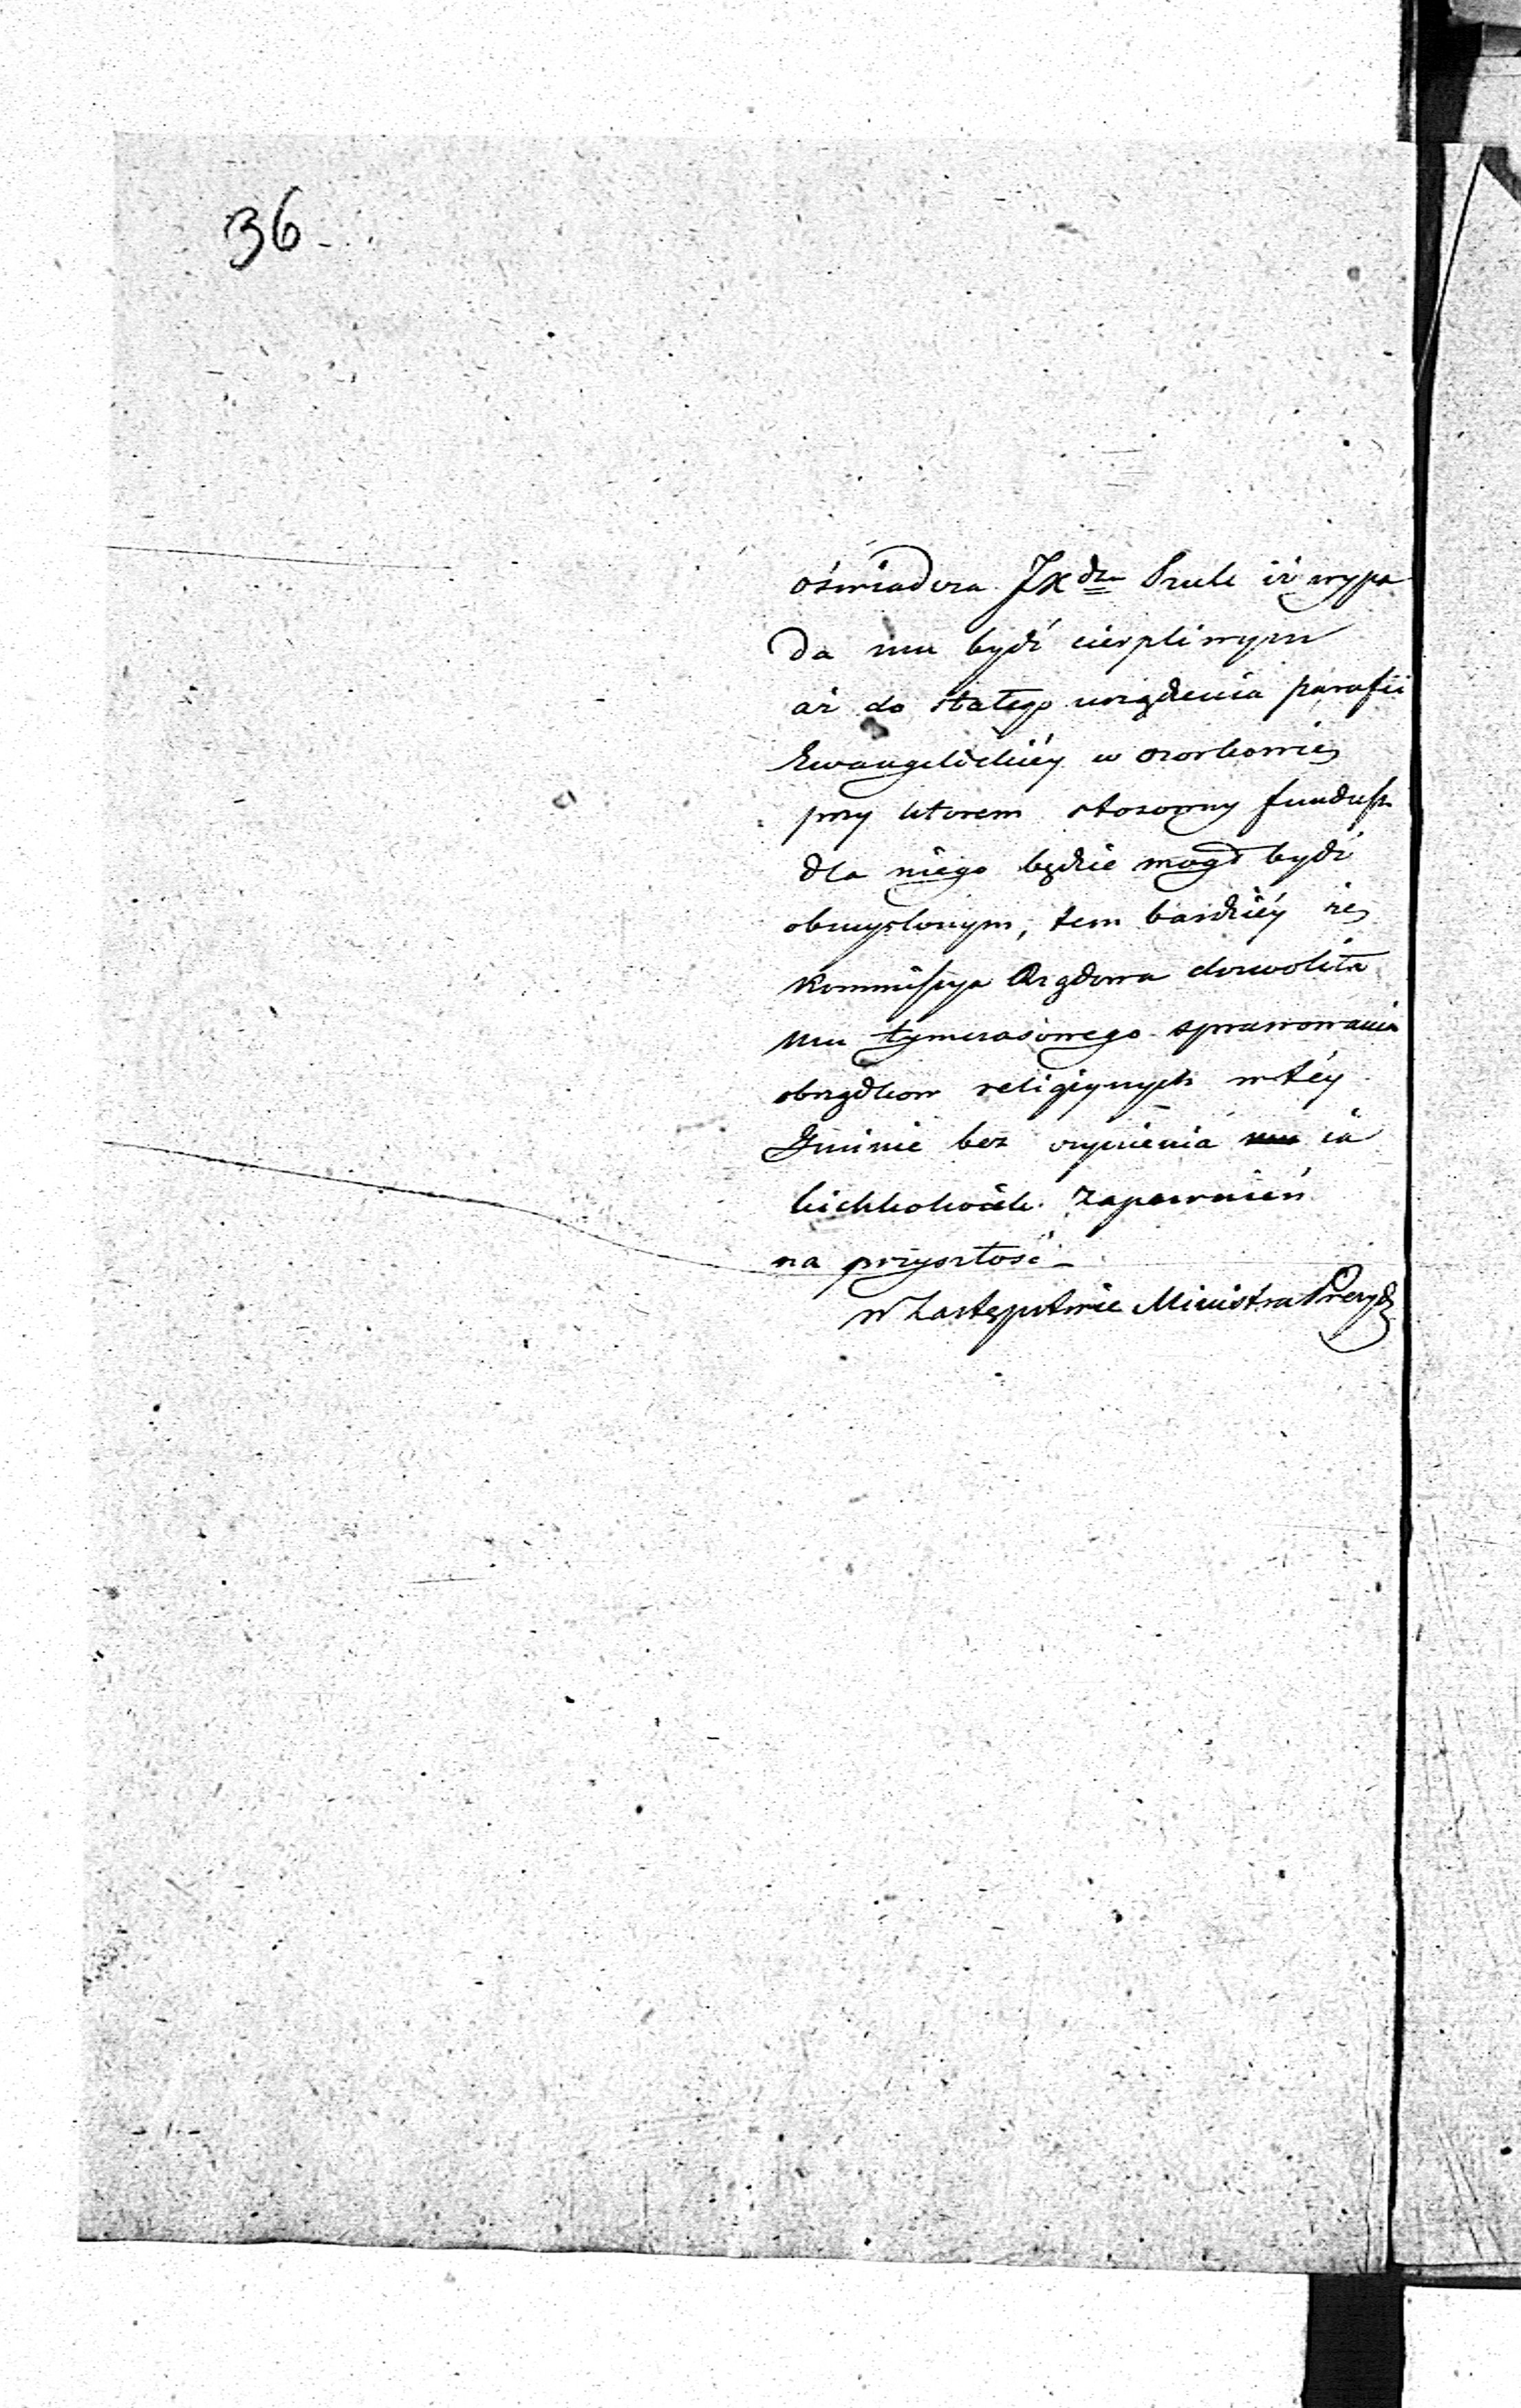 36
oświadcza JX dzu Szulc iż wypa
da mu bydź cierpliwym
aż do stałego urządzenia parafii
Ewangelickiéy w Ozorkowie,
przy którem stosowny fundusz
dla niego będzie mógł bydź
obmyslonym, tem bardziéy że,
Kommissya Rządowa dozwoliła
mu tymczasowego sprawowania
obrządkow religiynych w téy
Gminie bez czynienia ia
kichkolwiek zapewnień
na przyszłość –
w Zastępstwie Ministra Prezyd